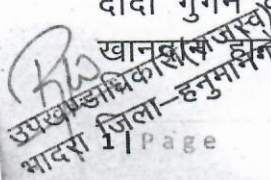 दादा गुगन
खानदान
उपखण्डाधिकारी(राजस्व)
भादरा जिला-हनुमानगढ़
1 | Page